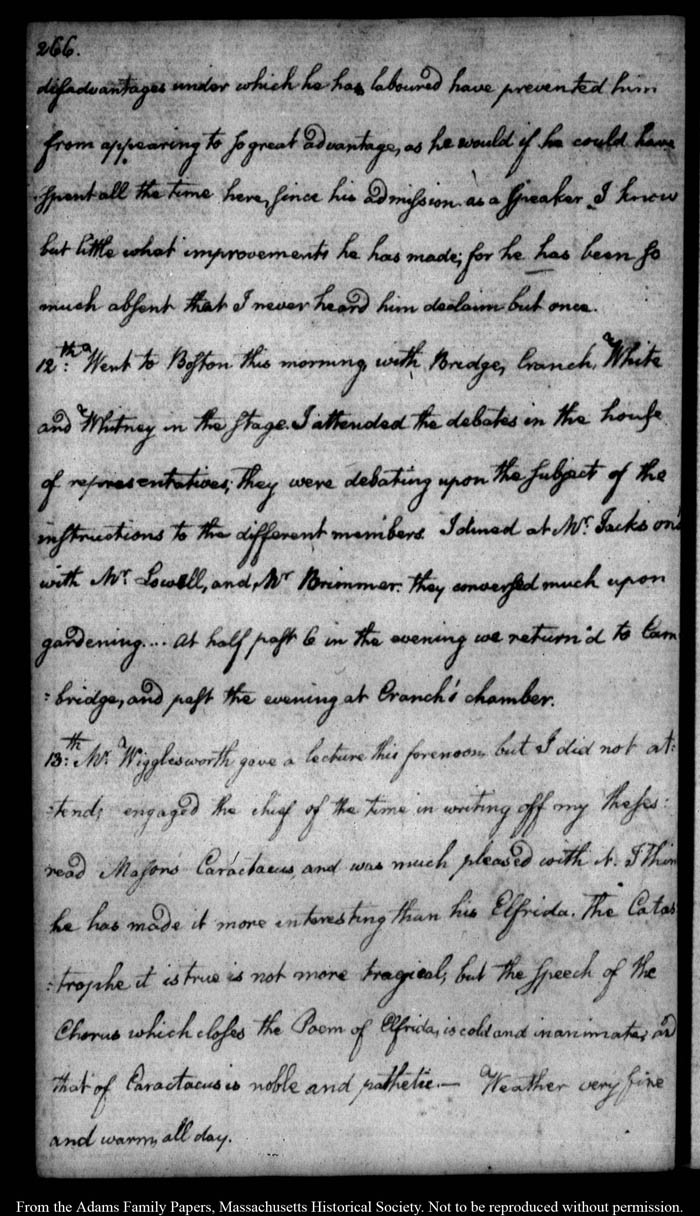 266.
disadvantages under which he has laboured have prevented him
from appearing to so great advantage, as he would if he could have
spent all the time here, since his admission as a speaker. I know
but little what improvements he has made; for he has been so
much absent that I never heard him declaim but once.
12th: Went to Boston this morning with Bridge, Cranch, White
and Whitney in the stage. I attended the debates in the house
of representatives; they were debating upon the subject of the
instructions to the different members. I dined at Mr. Jackson's
with Mr. Lowell, and Mr Brimmer. they conversed much upon
gardening.... at half past 6 in the evening we return'd to Cam
:bridge, and past the evening at Cranch's chamber.
13th: Mr. Wigglesworth gave a lecture this forenoon, but I did not at:
:tend; engaged the chief of the time in writing off my theses:
read Mason's Caráctacus, and was much pleased with it. I thin
he has made it more interesting than his Elfrida. The Catas
:trophe it is true is not more tragical, but the speech of the
Chorus which closes the Poem of Elfrida, is cold and inanimate; and
that of Caractacus is noble and pathetic.— Weather very fine
and warm, all day.
From the Adams Family Papers, Massachusetts Historical Society. Not to be reproduced without permission.